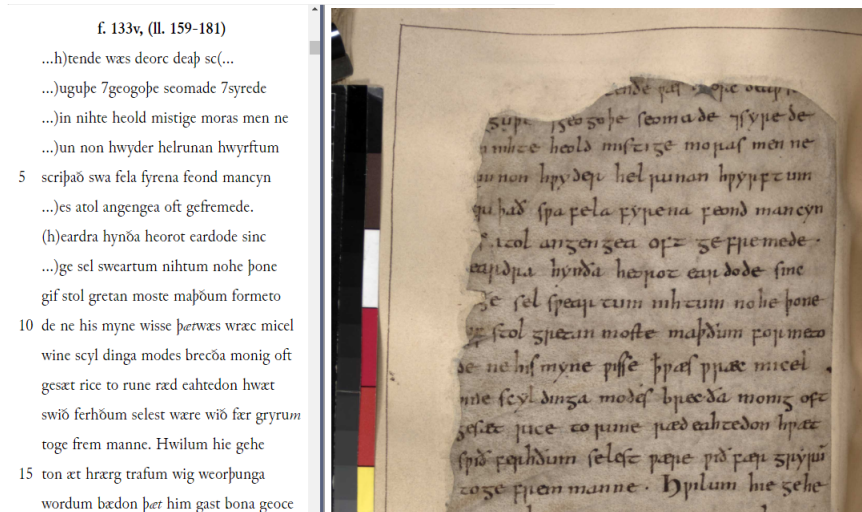 f. 133v, (ll. 159-181)
...h)tende wæs deorc deaþ sc(...
...)uguþe 7geogoþe seomade 7syrede
...)in nihte heold mistige moras men ne
...)un non hwyder helrunan hwyrftum
5 scriþað swa fela fyrena feond mancyn
...)es atol angengea oft gefremede.
(h)eardra hynða heorot eardode sinc
...)ge sel sweartum nihtum nohe þone
gif stol gretan moste maþðum formeto
10 de ne his myne wisse þærwæs wræc micel
wine scyl dinga modes brecða monig oft
gesæt rice to rune ræd eahtedon hwæt
swið ferhðum selest wære wið fær gryrum
toge frem manne. Hwilum hie gehe
15 ton æt hrærg trafum wig weorþunga
wordum bædon þæt him gast bona geoce
ende ƿæs
guþe ⁊geogoþe seomade ⁊syrede
nihte heold mistige moras men ne
un non hƿyder helrunan hƿyrftum
riþað sƿa fela fyrena feond mancyn
atol angengea oft gefremede.
eardra hynða heorot eardode sinc
ge sel sƿeartum nihtum nohe þone
stol gretan moste maþðum formeto
de ne his myne ƿisse þ̄ƿæs ƿræc micel
ine scyl dinga modes brecða monig oft
gesæt rice to rune ræd eahtedon hƿæt
sƿið ferhðum selest ƿære ƿið fær gryrū
toge frem manne. Hƿilum hie gehe